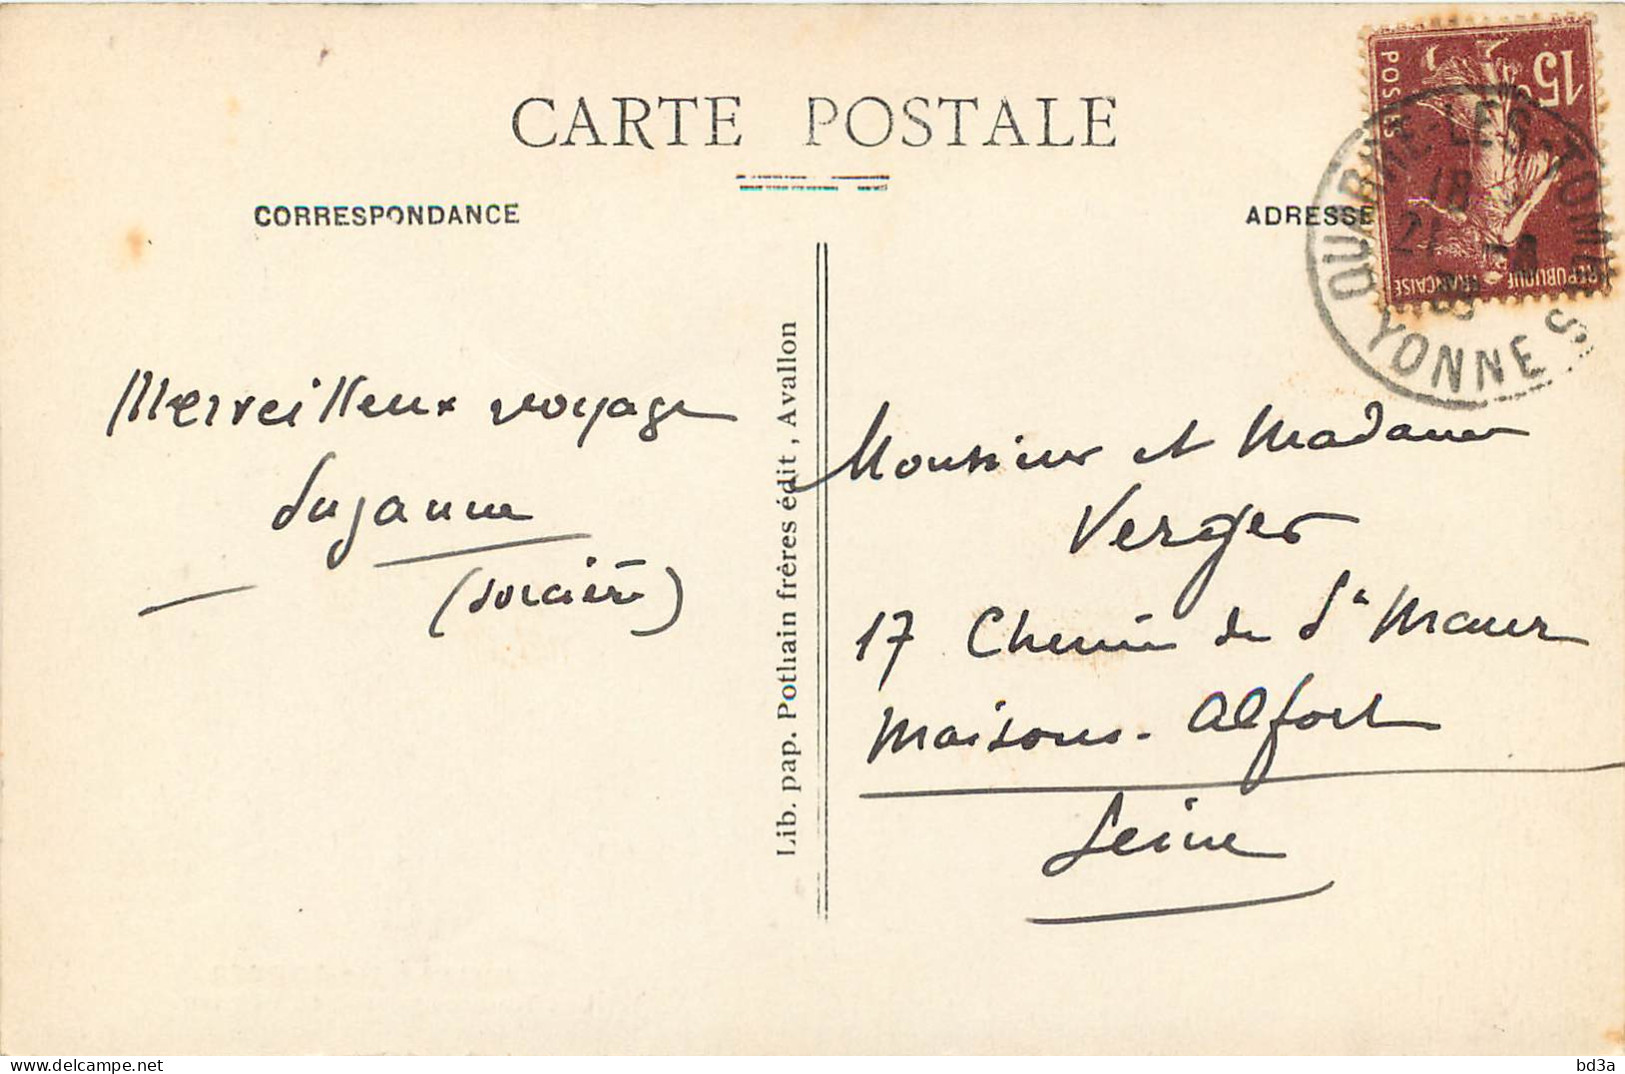 CARTE POSTALE
CORRESPONDANCE
ADRESSE
15c
POSTES
REPUBLIQUE FRANÇAISE
QUARRE-LES-TOMBES
18
21
YONNE
Merveilleux voyage
Suzanne
(sorcière)
Lib. pap. Pothain frères édit, Avallon
Monsieur et Madame
Verger
17 Chemin de St Maur
Maisons-Alfort
Seine
delcampe.net
bd3a